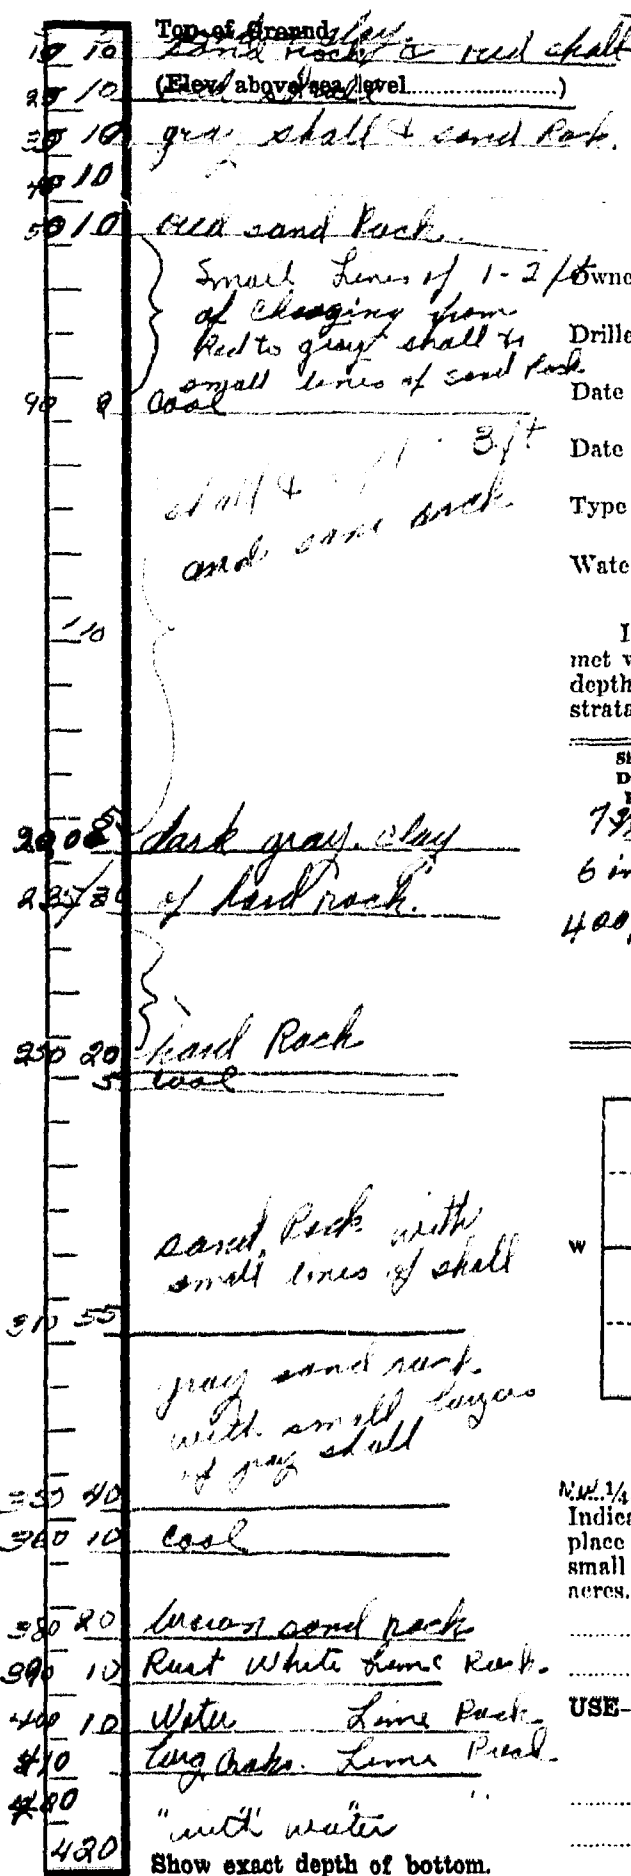 Top of Ground
10 10 sand rock & red shall
(Elev. above sea level....................)
10
10 gray shall & sand Rock.
10
50 10 red sand Rock.
Small Lines of 1-2 ft
of changing from
Red to gray shall &
small lines of sand Rock
90 coal
shall & 3 ft
and sand rock
dark gray clay
of hard rock.
250 20 hard Rock
5 coal
sand Rock with
small lines of shall
310 55
gray sand rock
with small layers
of gray shall
350 40
360 10 coal
380 20 brown sand rock
390 10 Rust White Lime Rock.
400 10 Water Lime Rock
410 Lime
"with water"
420
Show exact depth of bottom.
Owne
Drille
Date
Date
Type
Wate
I
met v
depth
strata
6 in
400
W
N.W. 1/4
Indica
place
small
acres.
USE—